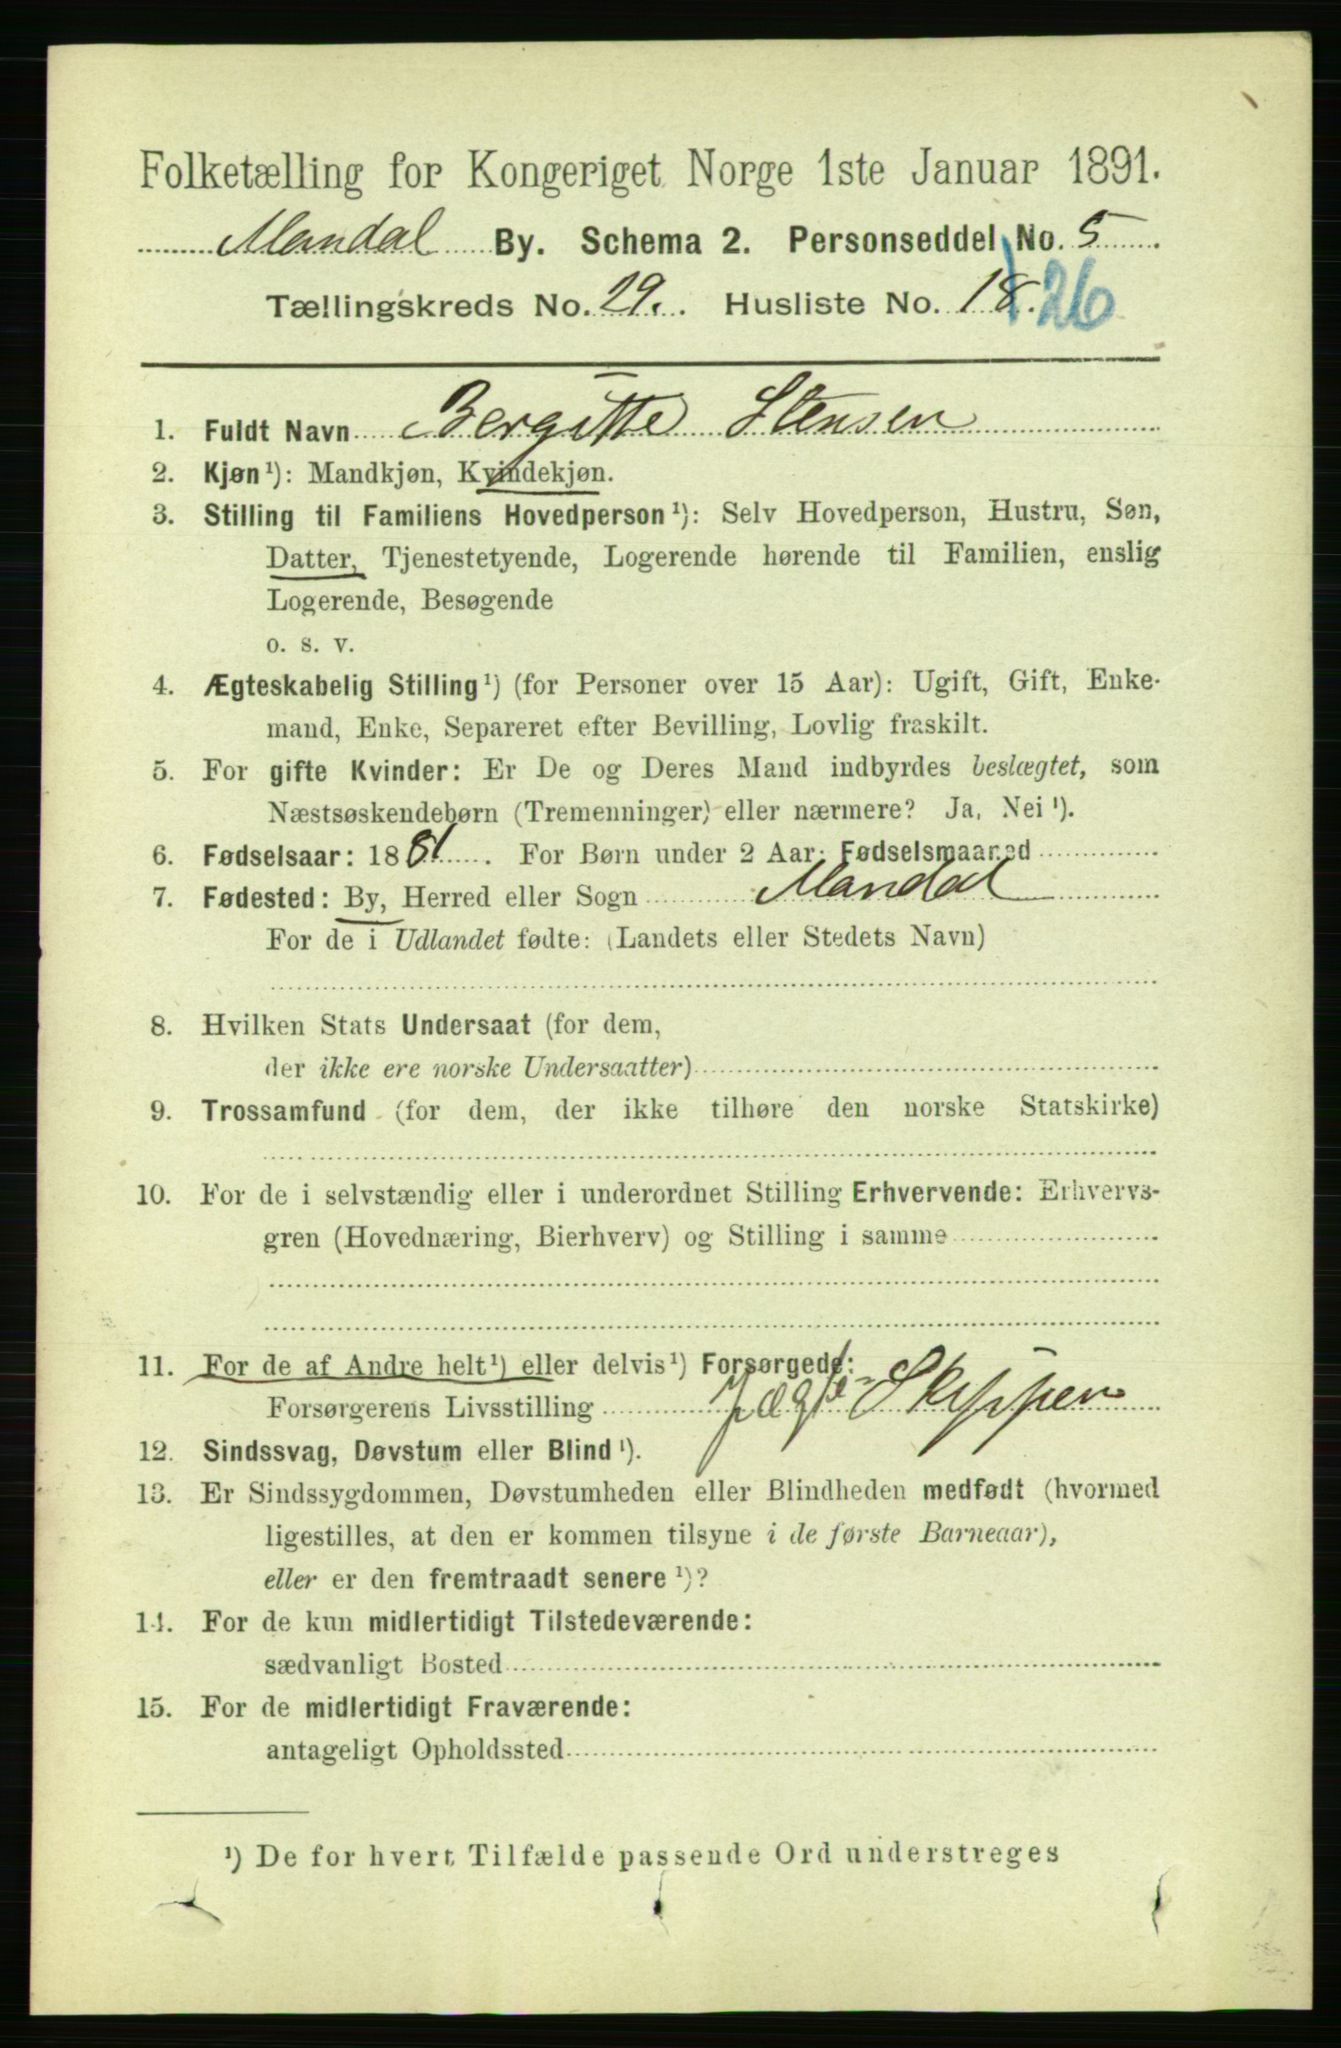 Folketælling for Kongeriget Norge 1ste Januar 1891.
Mandal By. Schema 2. Personseddel No. 5.
Tællingskreds No. 29. Husliste No. 18. 26
1. Fuldt Navn Bergitte Stensen
2. Kjøn¹): Mandkjøn, Kvindekjøn.
3. Stilling til Familiens Hovedperson¹): Selv Hovedperson, Hustru, Søn,
Datter, Tjenestetyende, Logerende hørende til Familien, enslig
Logerende, Besøgende
o. s. v.
4. Ægteskabelig Stilling¹) (for Personer over 15 Aar): Ugift, Gift, Enke-
mand, Enke, Separeret efter Bevilling, Lovlig fraskilt.
5. For gifte Kvinder: Er De og Deres Mand indbyrdes beslægtet, som
Næstsøskendebørn (Tremenninger) eller nærmere? Ja, Nei¹).
6. Fødselsaar: 1881. For Børn under 2 Aar: Fødselsmaaned
7. Fødested: By, Herred eller Sogn Mandal
For de i Udlandet fødte: (Landets eller Stedets Navn)
8. Hvilken Stats Undersaat (for dem,
der ikke ere norske Undersaatter)
9. Trossamfund (for dem, der ikke tilhøre den norske Statskirke)
10. For de i selvstændig eller i underordnet Stilling Erhvervende: Erhvervs-
gren (Hovednæring, Bierhverv) og Stilling i samme
11. For de af Andre helt¹) eller delvis¹) Forsørgede:
Forsørgerens Livsstilling Jægt-Skipper
12. Sindssvag, Døvstum eller Blind¹).
13. Er Sindssygdommen, Døvstumheden eller Blindheden medfødt (hvormed
ligestilles, at den er kommen tilsyne i de første Barneaar),
eller er den fremtraadt senere¹)?
14. For de kun midlertidigt Tilstedeværende:
sædvanligt Bosted
15. For de midlertidigt Fraværende:
antageligt Opholdssted
¹) De for hvert Tilfælde passende Ord understreges